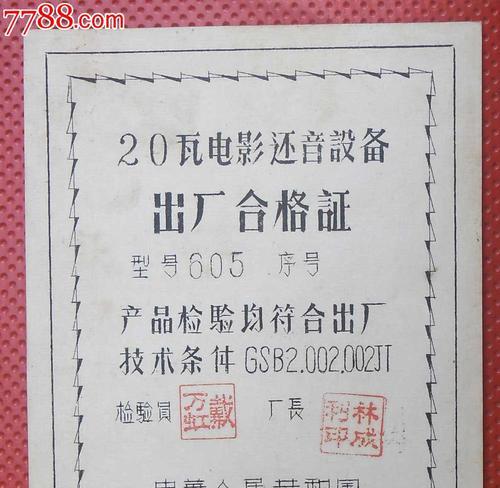 7788.com
20瓦电影还音設备
出厂合格証
型号605 序号
产品检驗均符合出厂
技术条件GSB2.002.002JT
检驗員 戴万虹 厂長 林成利印